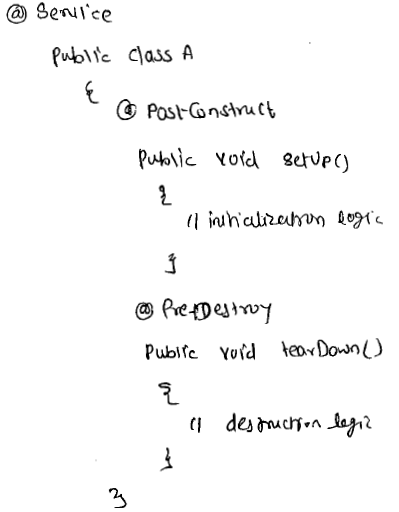 @ Service
public class A
{
@ PostConstruct
public void setUp()
{
// initialization logic
}
@ PreDestroy
public void tearDown()
{
// destruction logic
}
}